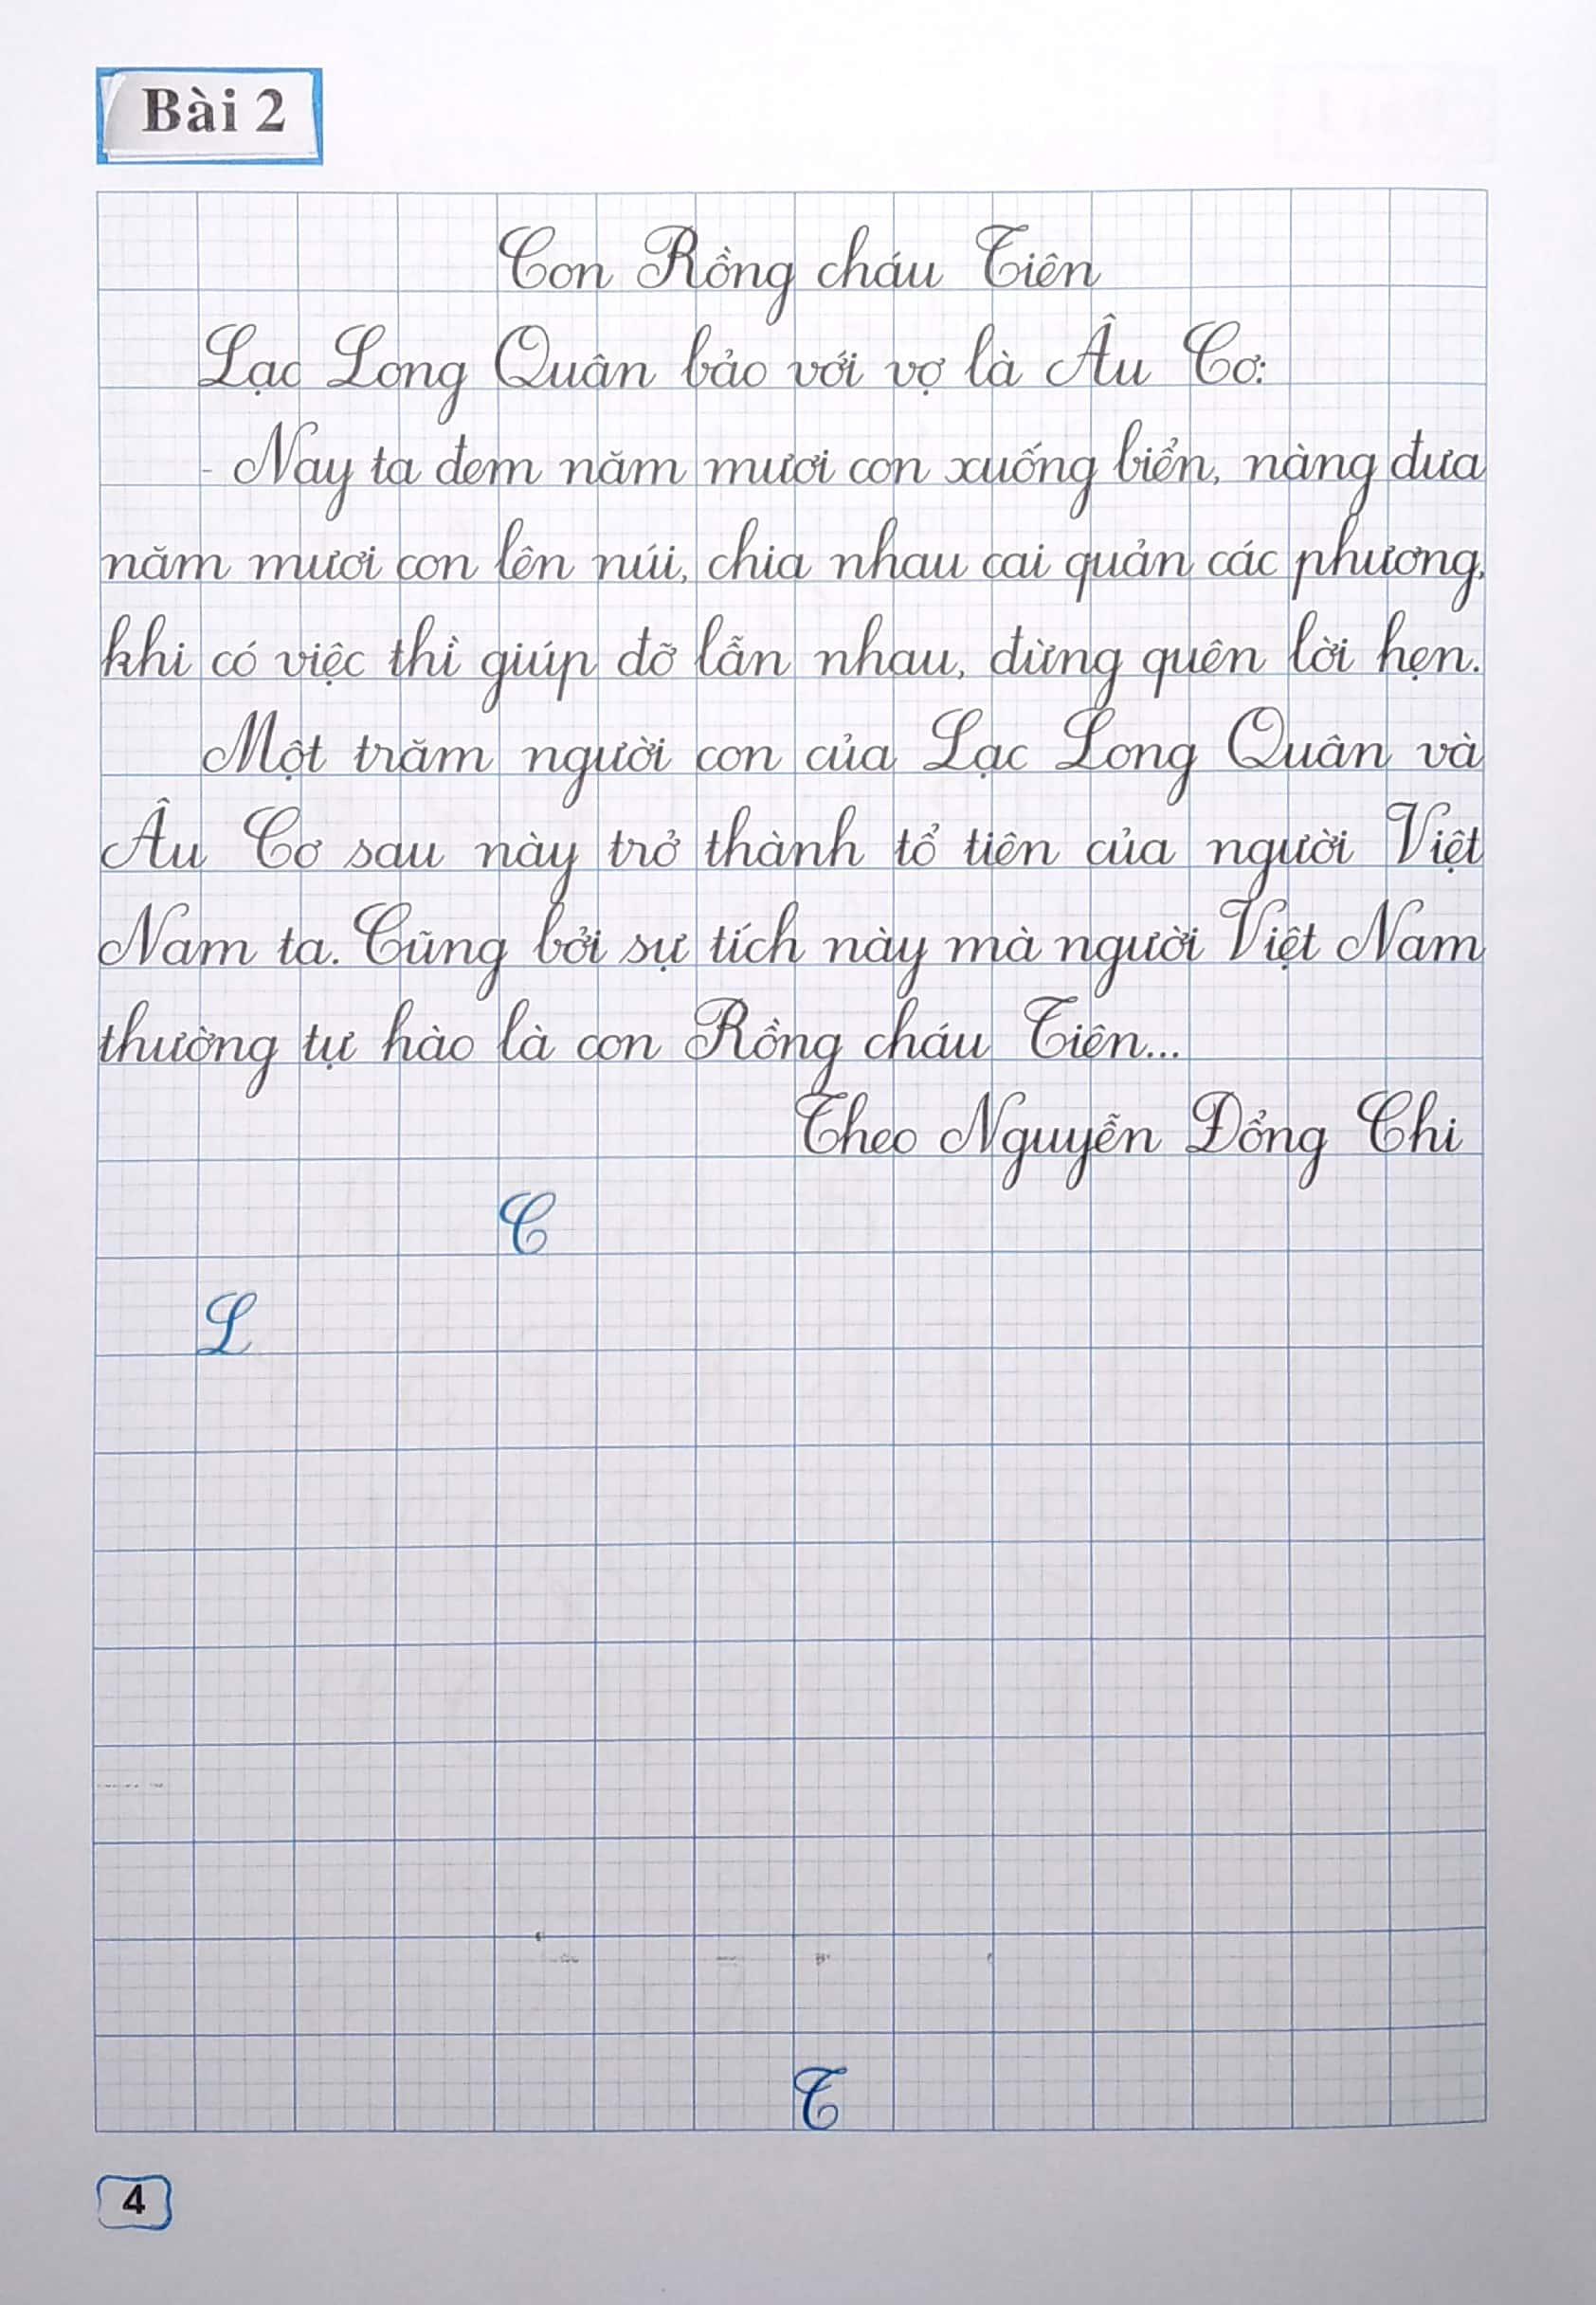 Bài 2
Con Rồng cháu Tiên
Lạc Long Quân bảo với vợ là Âu Cơ:
- Nay ta đem năm mươi con xuống biển, nàng đưa
năm mươi con lên núi, chia nhau cai quản các phương,
khi có việc thì giúp đỡ lẫn nhau, đừng quên lời hẹn.
Một trăm người con của Lạc Long Quân và
Âu Cơ sau này trở thành tổ tiên của người Việt
Nam ta. Cũng bởi sự tích này mà người Việt Nam
thường tự hào là con Rồng cháu Tiên...
Theo Nguyễn Đổng Chi
C
L
T
4